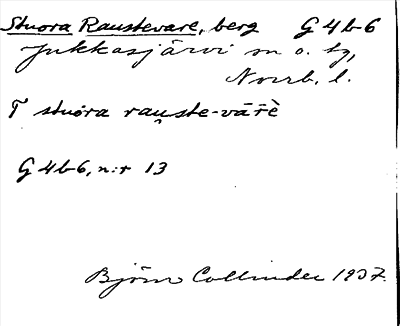 Stuora Raustevare, berg G4b6
Jukkasjärvi sn o. tg,
Norrb. l.
T stuóra rau̯ste-vār̄è
G4b6, n:r 13
Björn Collinder 1937.